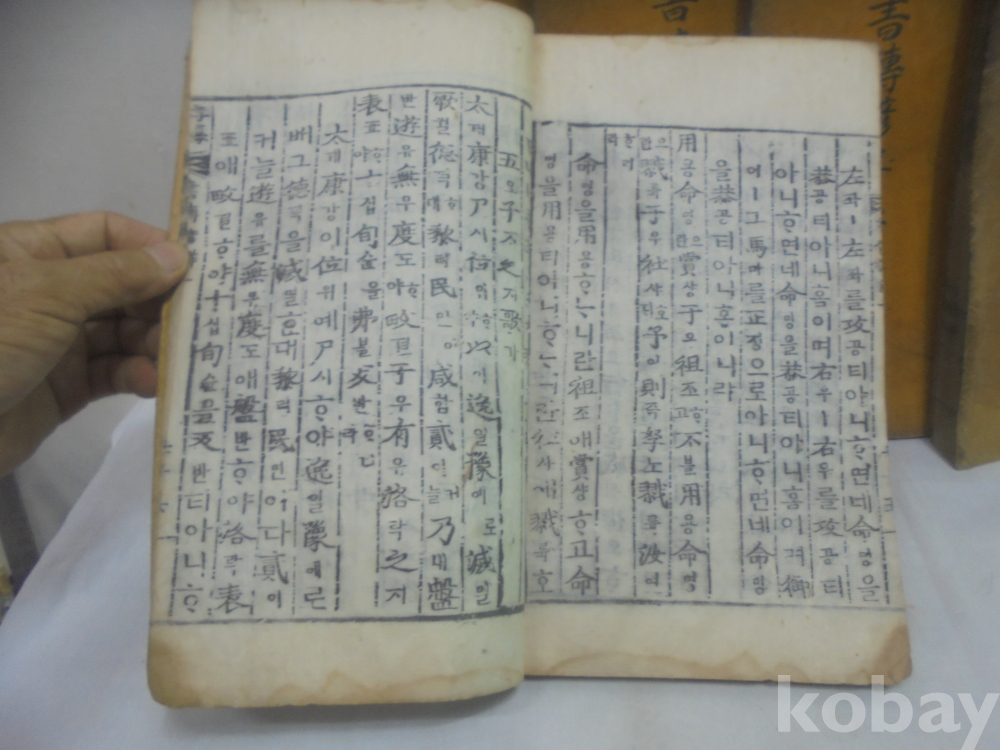 左좌ㅣ左좌를攻공티아니ᄒᆞ면네命명을
恭공티아니홈이며右우ㅣ右우를攻공티
아니ᄒᆞ면네命명을恭공티아니홈이며御
어ㅣ그馬마를正졍으로아니ᄒᆞ면네命명
을恭공티아니홈이니라
用용命명으란賞상于우祖조ᄒᆞ고不블用용命명
으란戮륙于우社샤호ᄃᆡ予여ㅣ則즉孥노戮륙汝여
호리라
命명을用용ᄒᆞᄂᆞ니란祖조애賞상ᄒᆞ고命
명을用용티아니ᄒᆞᄂᆞ니란社샤애戮륙호
五오子ᄌᆞ之지歌가
太태康강尸시位위ᄒᆞ야以이逸일豫예로滅멸
厥궐德덕ᄒᆞᆫ대黎려民민이咸함貳이커늘乃내盤
반遊유無무度도ᄒᆞ야畋뎐于우有유洛락之지
表표ᄒᆞ야十십旬슌을弗불反반ᄒᆞ니라
太태康강이位위예尸시ᄒᆞ야逸일豫예로
ᄡᅥ그德덕을滅멸ᄒᆞᆫ대黎려民민이다貳이
커늘遊유를無무度도애盤반ᄒᆞ야洛락表
표애畋뎐ᄒᆞ야十십旬슌을反반티아니ᄒᆞ
書傳諺
kobay